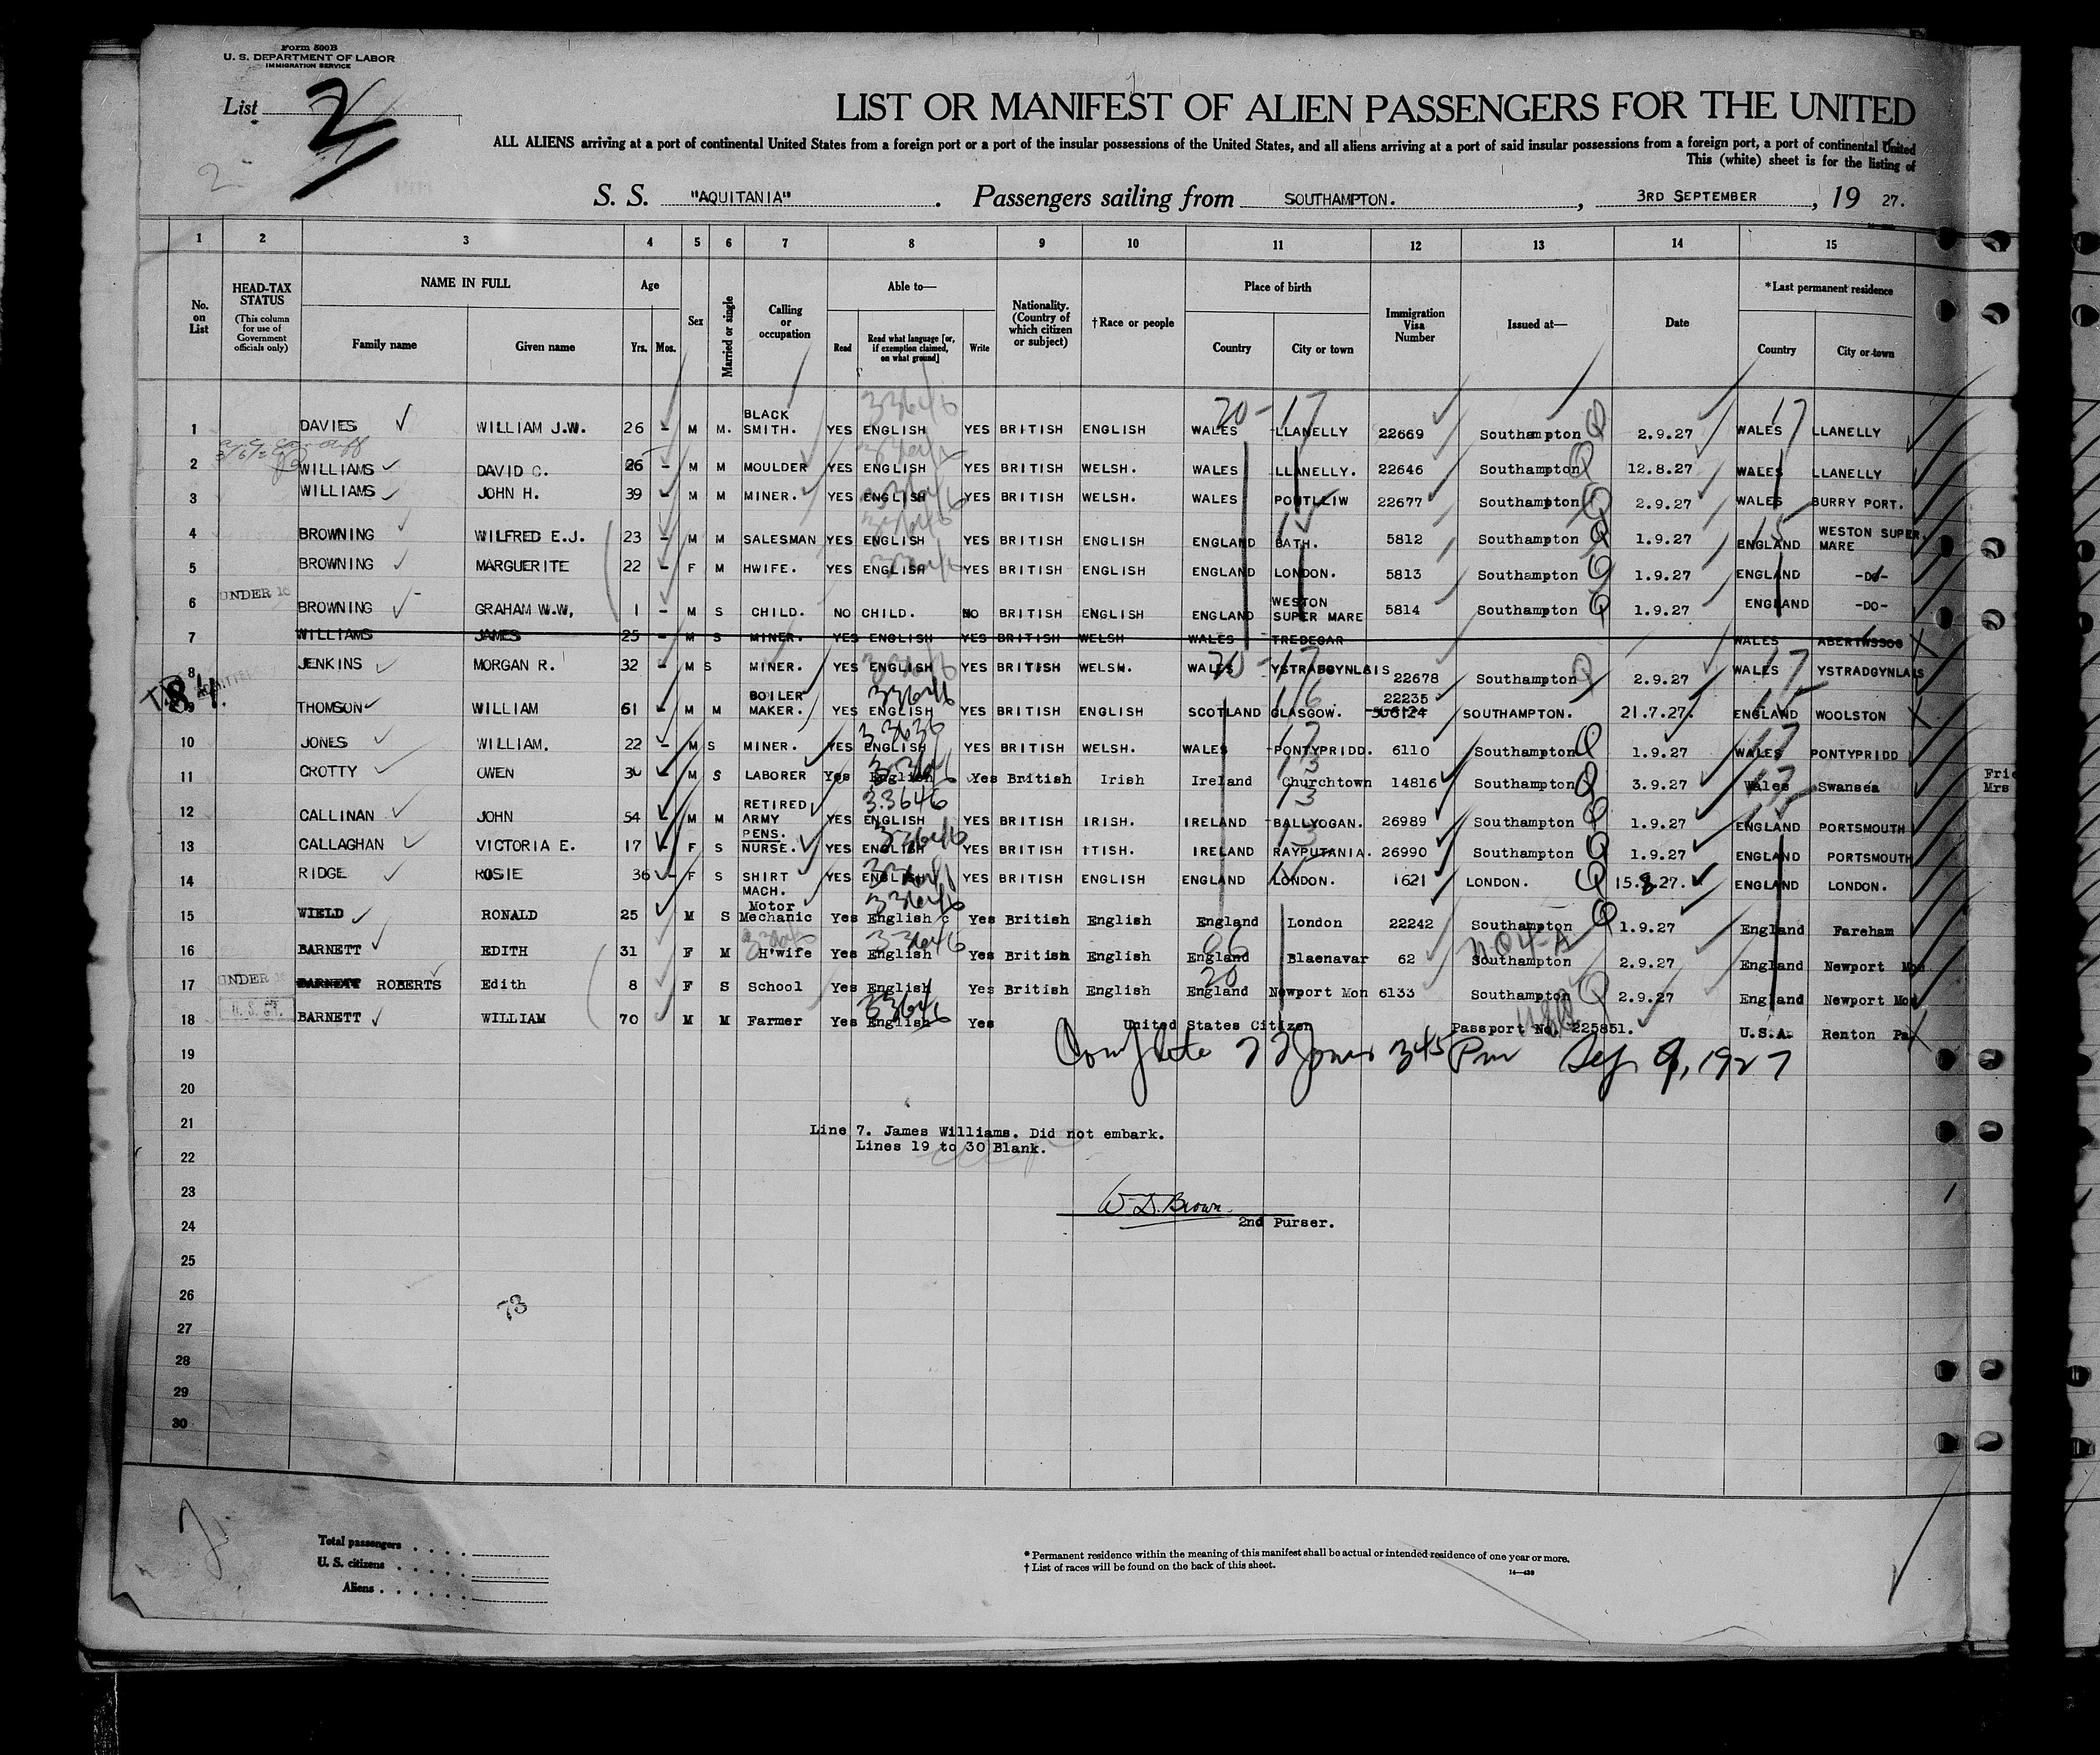 Form 500B
U. S. DEPARTMENT OF LABOR
IMMIGRATION SERVICE
List 2
2
LIST OR MANIFEST OF ALIEN PASSENGERS FOR THE UNITED
ALL ALIENS arriving at a port of continental United States from a foreign port or a port of the insular possessions of the United States, and all aliens arriving at a port of said insular possessions from a foreign port, a port of continental United
This (white) sheet is for the listing of
S. S. "AQUITANIA" . Passengers sailing from SOUTHAMPTON. , 3RD SEPTEMBER , 19 27.
1 2 3 4 5 6 7 8 9 10 11 12 13 14 15
No. on List HEAD-TAX STATUS (This column for use of Government officials only) NAME IN FULL Family name Given name Age Yrs. Mos. Sex Married or single Calling or occupation Able to— Read Read what language [or, if exemption claimed, on what ground] Write Nationality. (Country of which citizen or subject) †Race or people Place of birth Country City or town Immigration Visa Number Issued at— Date *Last permanent residence Country City or town
1 DAVIES WILLIAM J.W. 26 - M M. BLACK SMITH. YES ENGLISH YES BRITISH ENGLISH WALES LLANELLY 22669 Southampton 2.9.27 WALES LLANELLY
2 WILLIAMS DAVID C. 26 - M M MOULDER YES ENGLISH YES BRITISH WELSH. WALES LLANELLY. 22646 Southampton 12.8.27 WALES LLANELLY
3 WILLIAMS JOHN H. 39 - M M MINER. YES ENGLISH YES BRITISH WELSH. WALES PONTLLIW 22677 Southampton 2.9.27 WALES BURRY PORT.
4 BROWNING WILFRED E.J. 23 - M M SALESMAN YES ENGLISH YES BRITISH ENGLISH ENGLAND BATH. 5812 Southampton 1.9.27 ENGLAND WESTON SUPER MARE
5 BROWNING MARGUERITE 22 - F M HWIFE. YES ENGLISH YES BRITISH ENGLISH ENGLAND LONDON. 5813 Southampton 1.9.27 ENGLAND -DO-
UNDER 16
6 BROWNING GRAHAM W.W, 1 - M S CHILD. NO CHILD. NO BRITISH ENGLISH ENGLAND WESTON SUPER MARE 5814 Southampton 1.9.27 ENGLAND -DO-
7 WILLIAMS JAMES 25 - M S MINER. YES ENGLISH YES BRITISH WELSH WALES TREDEGAR WALES
8 JENKINS MORGAN R. 32 - M S MINER. YES ENGLISH YES BRITISH WELSH. WALES YSTRADGYNLAIS 22678 Southampton 2.9.27 WALES YSTRADGYNLAIS
9 THOMSON WILLIAM 61 - M M BOILER MAKER. YES ENGLISH YES BRITISH ENGLISH SCOTLAND GLASGOW. 22235 SOUTHAMPTON. 21.7.27. ENGLAND WOOLSTON
10 JONES WILLIAM. 22 - M S MINER. YES ENGLISH YES BRITISH WELSH. WALES PONTYPRIDD. 6110 Southampton 1.9.27 WALES PONTYPRIDD
11 CROTTY OWEN 30 - M S LABORER Yes English Yes British Irish Ireland Churchtown 14816 Southampton 3.9.27 Wales Swansea
12 CALLINAN JOHN 54 - M M RETIRED ARMY PENS. YES ENGLISH YES BRITISH IRISH. IRELAND BALLYOGAN. 26989 Southampton 1.9.27 ENGLAND PORTSMOUTH
13 CALLAGHAN VICTORIA E. 17 - F S NURSE. YES ENGLISH YES BRITISH ITISH. IRELAND RAYPUTANIA. 26990 Southampton 1.9.27 ENGLAND PORTSMOUTH
14 RIDGE ROSIE 36 - F S SHIRT MACH. YES ENGLISH YES BRITISH ENGLISH ENGLAND LONDON. 1621 LONDON. 15.8.27. ENGLAND LONDON.
15 WIELD RONALD 25 M S Motor Mechanic Yes English Yes British English England London 22242 Southampton 1.9.27 England Fareham
16 BARNETT EDITH 31 F M H'wife Yes English Yes British English England Blaenavar 62 Southampton 2.9.27 England Newport Mon
UNDER 16
17 BARNETT ROBERTS Edith 8 F S School Yes English Yes British English England Newport Mon 6133 Southampton 2.9.27 England Newport Mon
18 BARNETT WILLIAM 70 M M Farmer Yes English Yes United States Citizen Passport No. 225851. U.S.A. Renton Pa
19
20
21
22
23
24
25
26
27
28
29
30
345 Pm Sep 9, 1927
Line 7. James Williams. Did not embark.
Lines 19 to 30 Blank.
W. D. Brown.
2nd Purser.
73
Total passengers
U. S. citizens
Aliens
* Permanent residence within the meaning of this manifest shall be actual or intended residence of one year or more.
† List of races will be found on the back of this sheet.